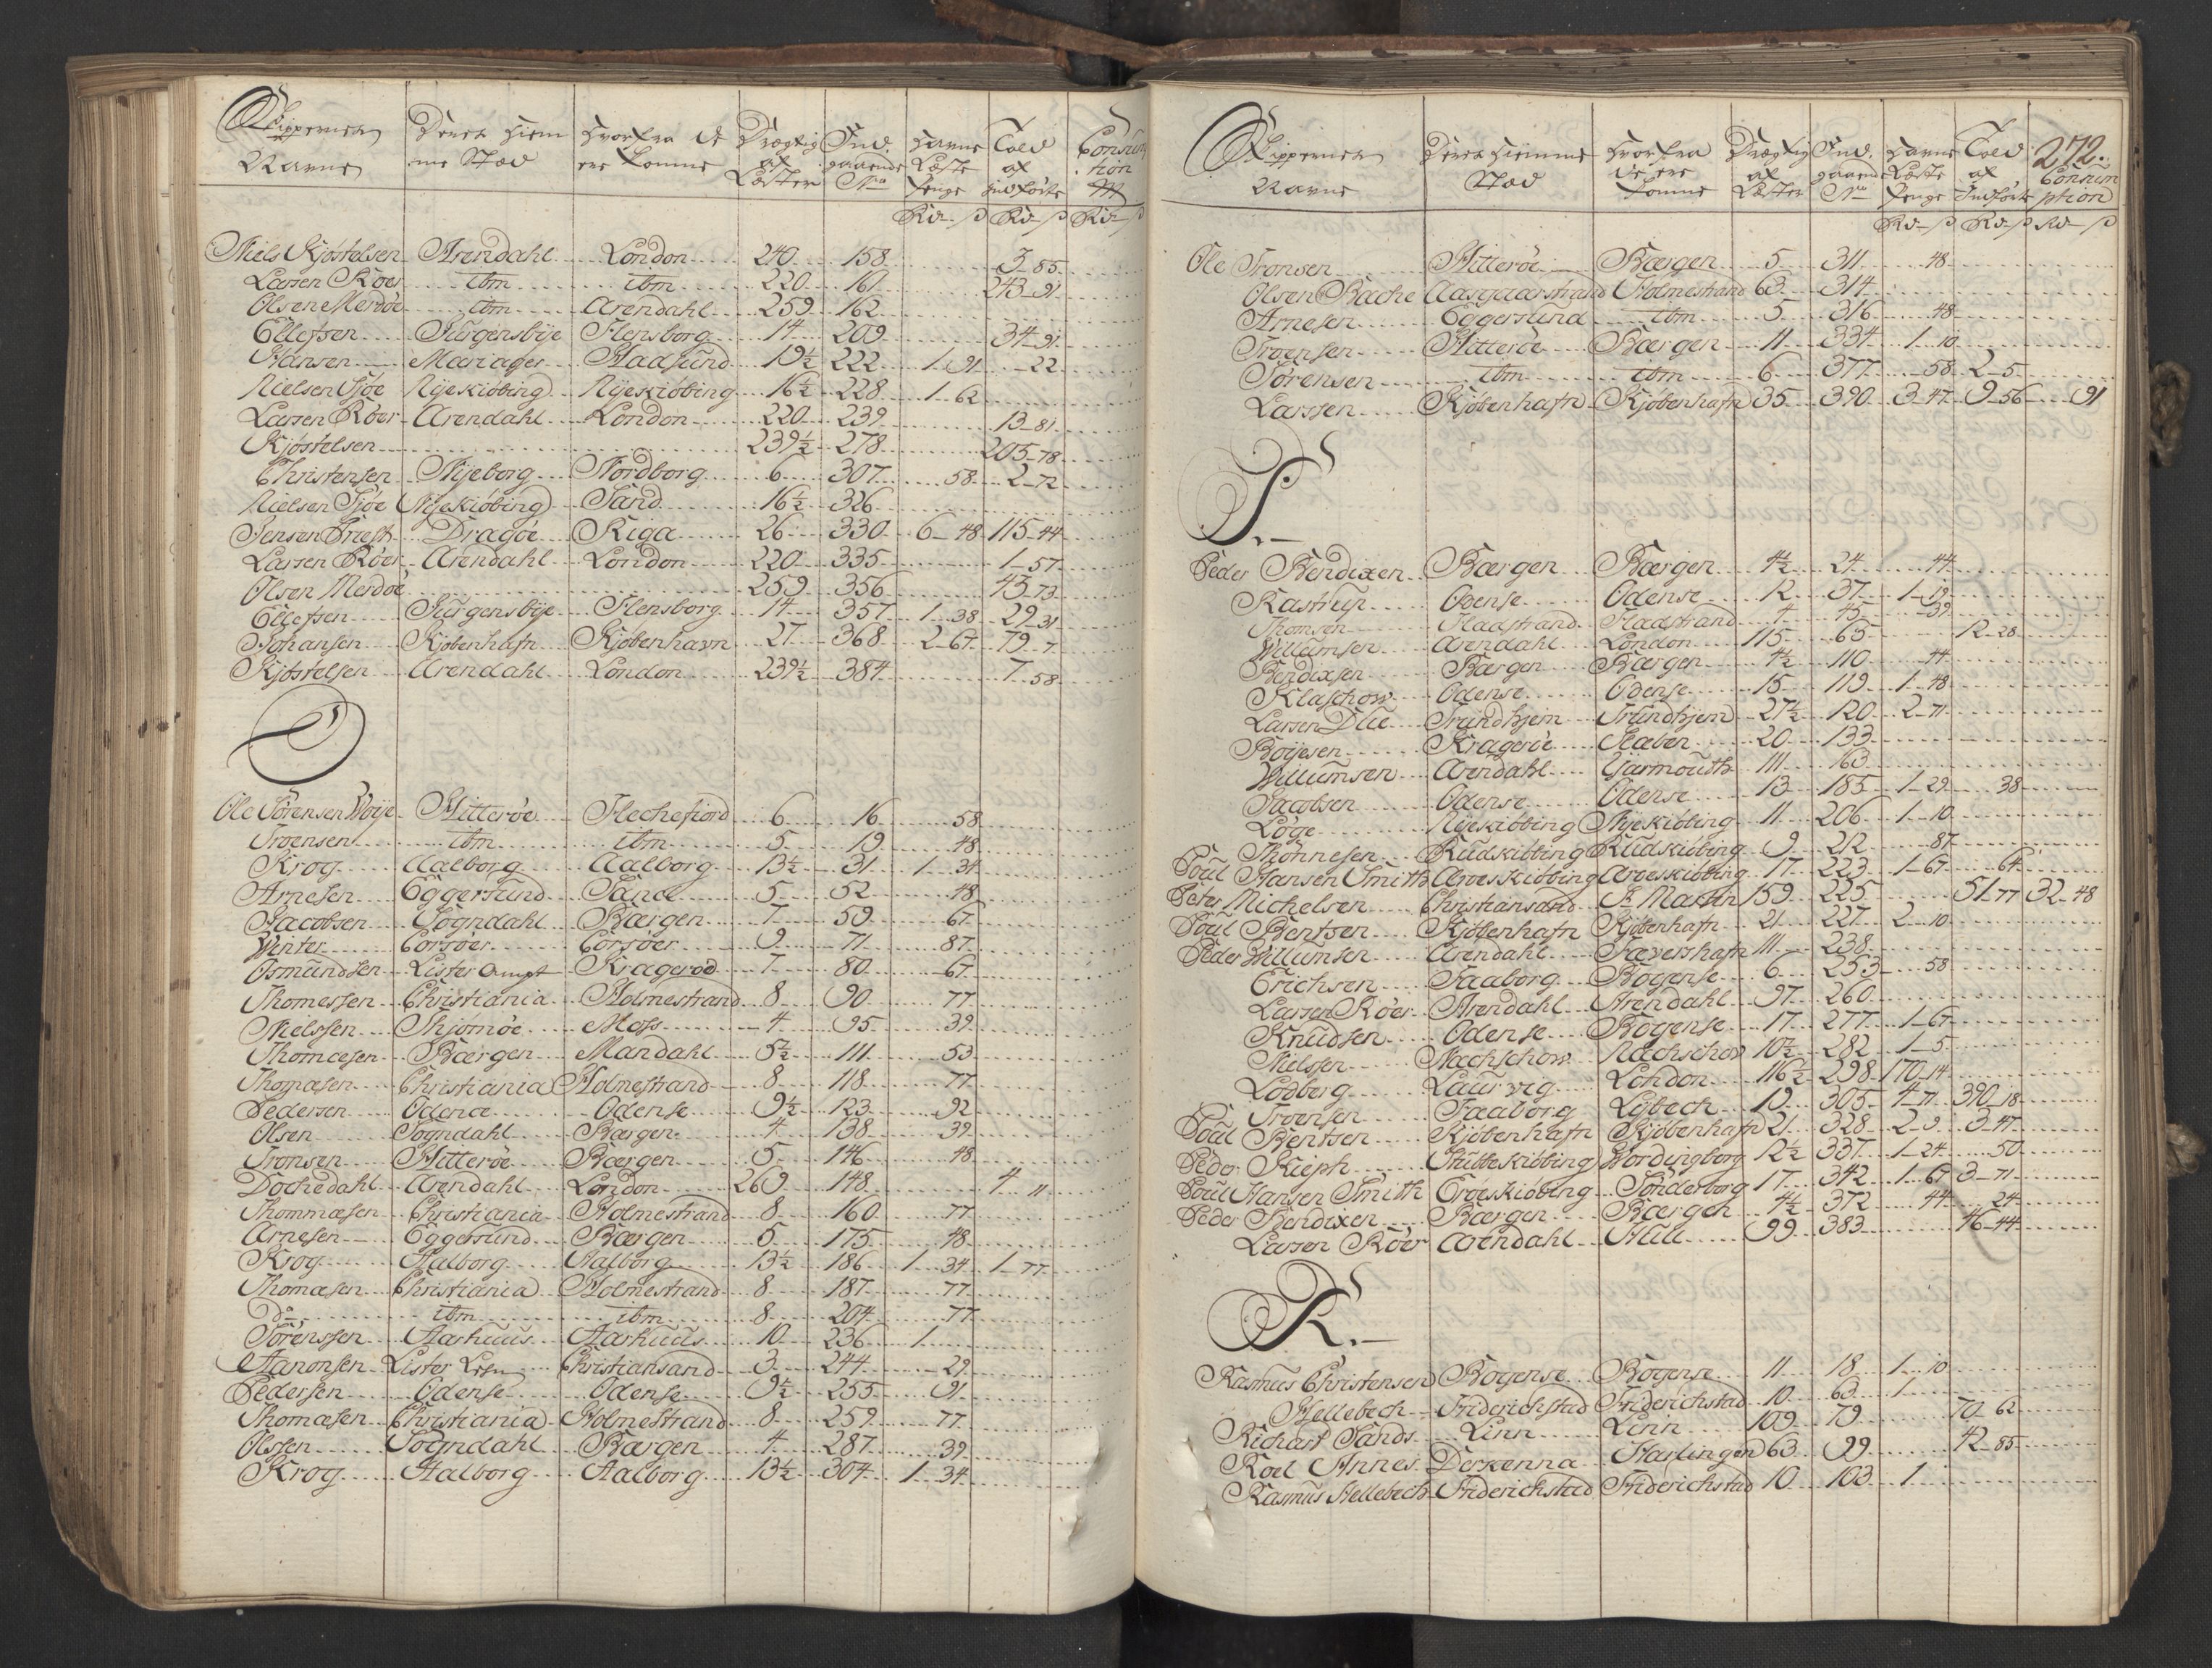 Skippernes Navne | Deres Hiemme Stæd | Hvorfra de ere komne | Drægtig af Læster | Ind gaaende No | Havne Læste Penge | Told af Indførte | Consumtion
Rd ß | Rd ß | Rd ß
Niels Kjøstelsen Arendahl London 240 158 3 85
Larsen Røer ibm ibm 220 161 243 91
Olsen Merdøe ibm Arendahl 259 162
Ellefsen Jürgensbÿe Flensborg 14 209 34 91
Hansen Mariager Haadsund 19½ 222 1 91 22
Nielsen Sjøe Nÿekiøbing Nÿekiøbing 16½ 228 1 62
Larsen Røer Arendahl London 220 239 13 81
Kjøstelsen 239½ 278 205 78
Christensen Nÿeborg Nordborg 6 307 58 2 72
Nielsen Sjøe Nÿekiøbing Sand 16½ 326
Jensen Driest Dragøe Riga 26 330 6 48 115 44
Larsen Røer Arendahl London 220 335 1 57
Olsen Merdøe 259 356 43 73
Ellefsen Jürgensbÿe Flensborg 14 357 1 38 29 31
Johansen Kjøbenhafn Kjøbenhavn 27 368 2 67 79 7
Kjøstelsen Arendahl London 239½ 384 7 58
O
Ole Sørensen Woije Hitterøe Flechefiord 6 16 58
Tronsen ibm ibm 5 19 48
Krog Aalborg Aalborg 13½ 31 1 34
Arnesen Eggersund Sand 5 52 48
Jacobsen Sogndahl Bærgen 7 59 67
Winter Corsøer Corsøer 9 71 87
Osmundsen Lister Ampt Kragerøe 7 80 67
Thomessen Christiania Holmestrand 8 90 77
Nielssen Thjømøe Moss 4 95 39
Thomæsen Bærgen Mandahl 5½ 111 53
Thomæsen Christiania Holmestrand 8 118 77
Pedersen Odense Odense 9½ 123 92
Olsen Sogndahl Bærgen 4 138 39
Tronsen Hitterøe Bærgen 5 146 48
Dochedahl Arendahl London 269 148 4 11
Thommæsen Christiania Holmestrand 8 160 77
Arnesen Eggersund Bærgen 5 175 48
Krog Aalborg Aalborg 13½ 186 1 34 1 77
Thomæsen Christiania Holmestrand 8 187 77
Do ibm ibm 8 204 77
Sørenssen Aarhuus Aarhuus 10 236 1
Aanonsen Lister Lehn Christiansand 3 244 29
Pedersen Odense Odense 9½ 255 91
Thomæsen Christiania Holmestrand 8 259 77
Olssen Sogndahl Bærgen 4 287 39
Krog Aalborg Aalborg 13½ 304 1 34
272.
Skippernes Navne | Deres Hiemme Stæd | Hvorfra de ere komne | Drægtig af Læster | Ind gaaende No | Havne Læste Penge | Told af Indførte | Consumption
Rd ß | Rd ß | Rd ß
Ole Tronsen Hitterøe Bærgen 5 311 48
Olsen Bache Aasgaarstrand Holmestrand 63 314
Arnesen Eggersund ibm 5 316 48
Troensen Hitterøe Bærgen 11 334 1 10
Sørensen ibm ibm 6 377 58 2 5
Larssen Kjøbenhafn Kjøbenhafn 35 390 3 47 9 56 91
P.
Peder Bendixen Bærgen Bærgen 4½ 24 44
Kastrup Odense Odense 12 37 1 19
Thomsen Fladstrand Fladstrand 4 45 39
Willumsen Arendahl London 115 65 12 28
Bendixsen Bærgen Bærgen 4½ 110 44
Klaschow Odense Odense 15 119 1 48
Larsen Due Trundhjem Trundhjem 27½ 120 2 71
Boÿesen Kragerøe Staben 20 133
Willumsen Arendahl Yarmouth 111 163
Jacobsen Odense Odense 13 185 1 29 38
Løge Nÿekiøbing Nÿekiøbing 11 206 1 10
Thonnesen Rudkiøbing Rudkiøbing 9 212 87
Poul Hansen Smith Aroeskiøbing Aroeskiøbing 17 223 1 67 64
Peter Michelsen Christiansand St Martin 159 225 51 77 32 48
Poul Bentsen Kjøbenhafn Kjøbenhafn 21 227 2 10
Peder Willumsen Arendahl Favershafn 111 238
Erichsen Faaborg Bogense 6 253 58
Larsen Røer Arendahl Arendahl 97 260
Knudsen Odense Bogense 17 277 1 67
Nielsen Nachschow Nachschow 10½ 282 1 5
Lodberg Laurvig London 116½ 298 170 14
Troensen Faaborg Lÿbech 19 305 4 71 390 18
Poul Bentsen Kjøbenhafn Kjøbenhafn 21 328 2 9 3 47
Peder Kieph Stubbekiøbing Wordingborg 12½ 337 1 24 50
Poul Hansen Smith Eroeskiøbing Sønderborg 17 342 1 67 3 71
Peder Bendixen Bærgen Bærgen 4½ 372 44 24
Larsen Røer Arendahl Hull 99 383 46 44
R.
Rasmus Christensen Bogense Bogense 11 18 1 10
Hellebech Friderichstad Friderichstad 10 63 1
Richart Sands Linn Linn 109 79 70 62
Roel Annes Derkenna Harlingen 63 99 42 85
Rasmus Hellebech Friderichstad Friderichstad 10 103 1